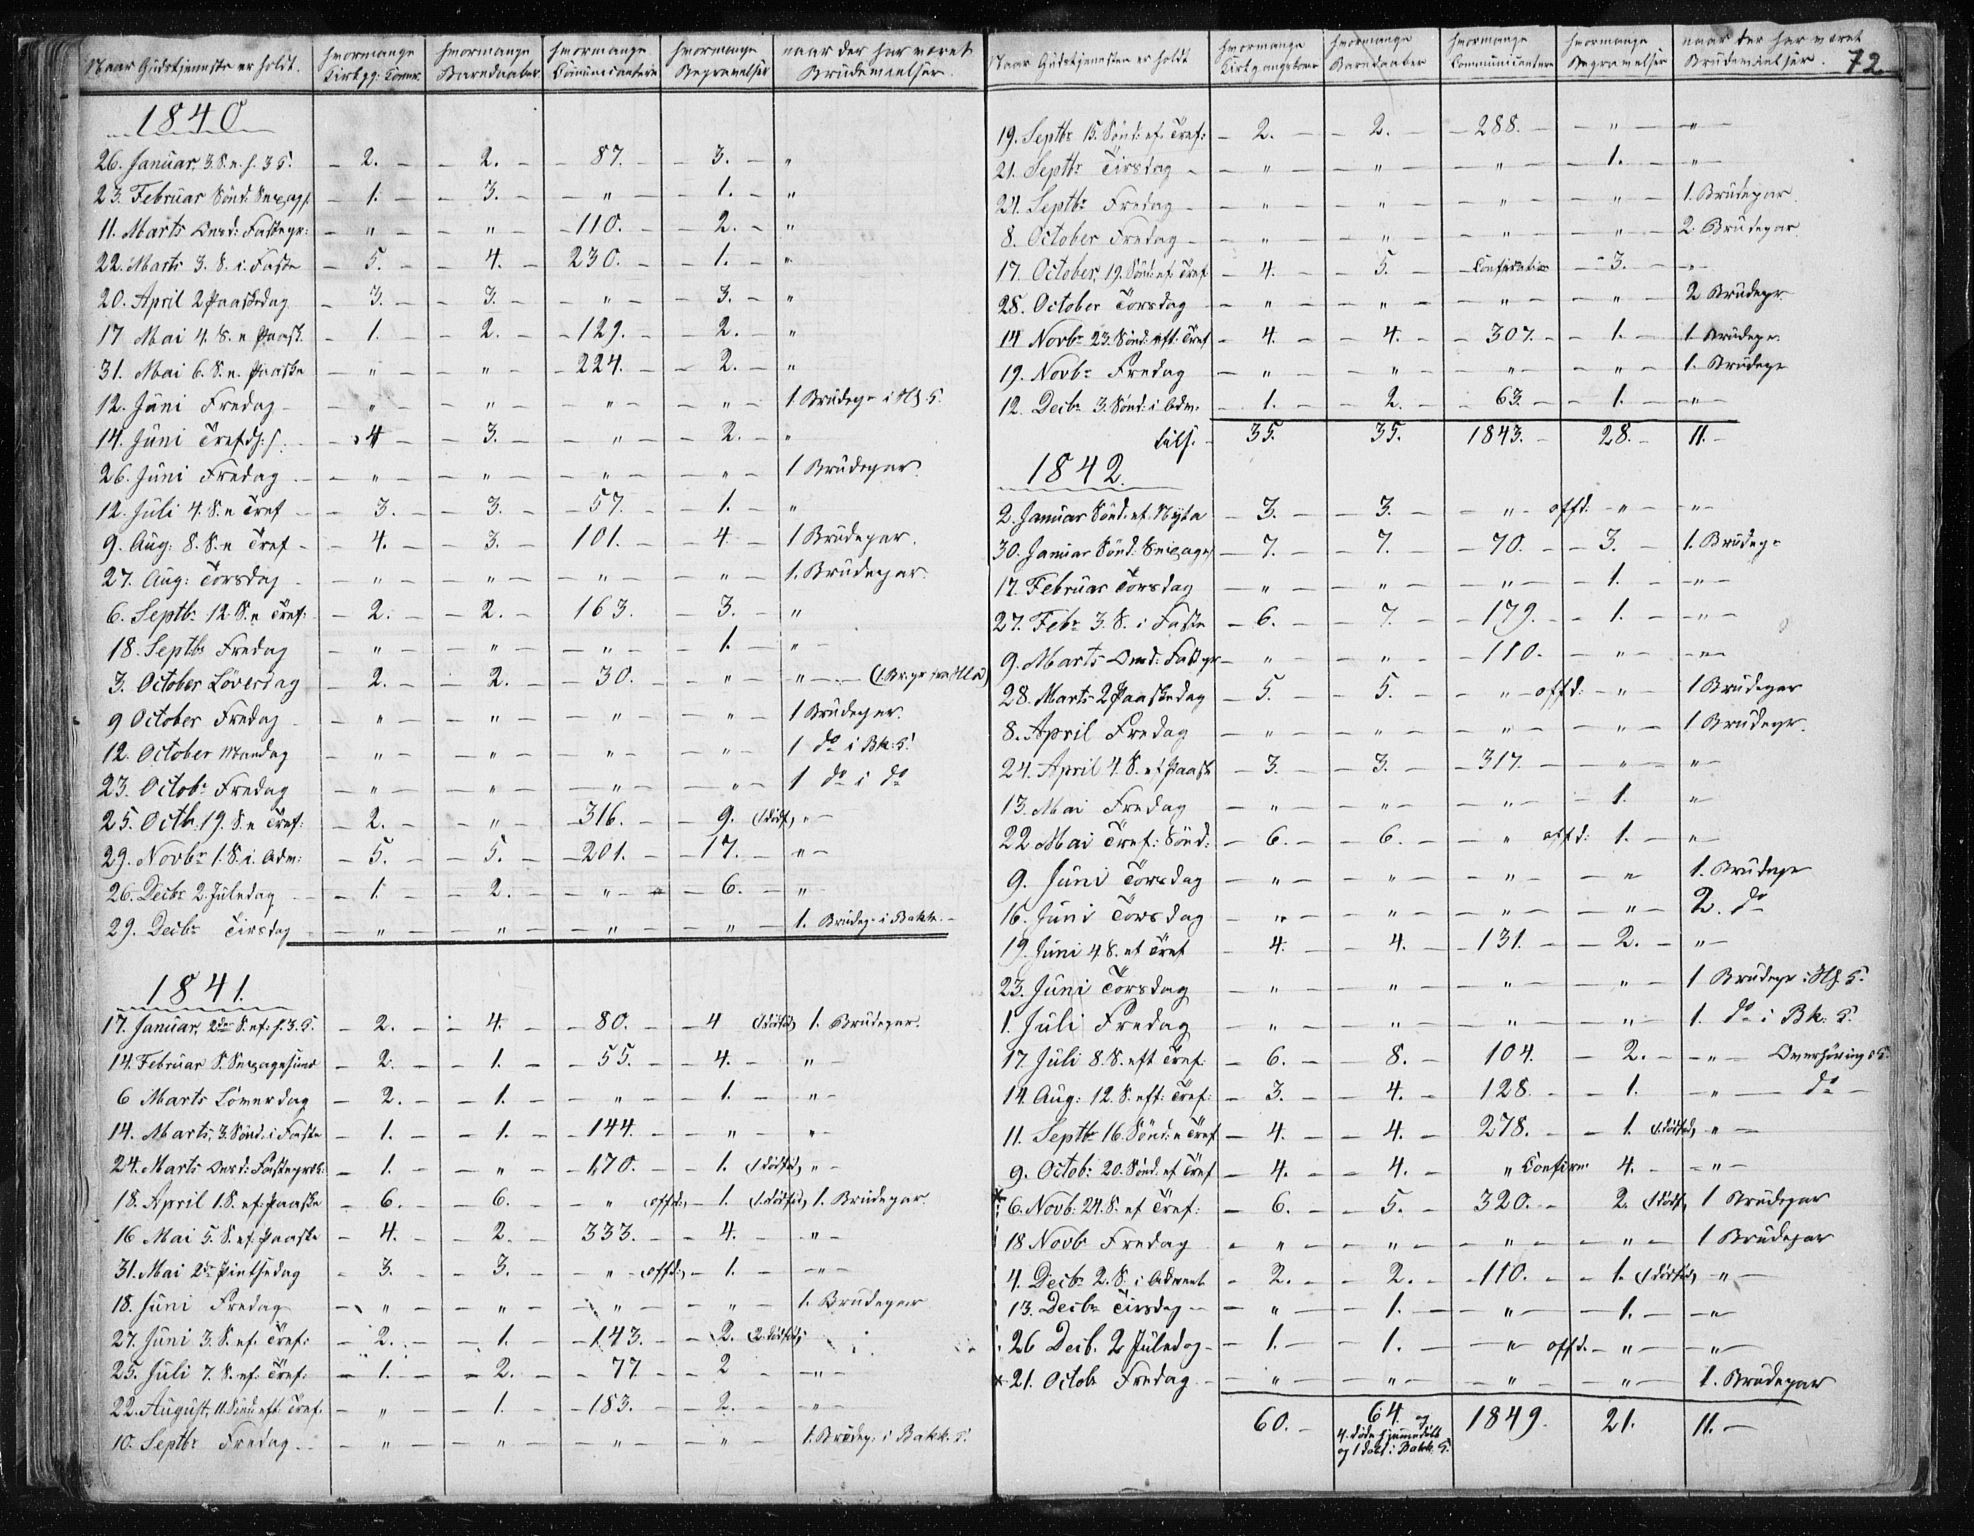 Naar Gudstjeneste er holdt. hvormange Kirkgg. Koner. hvormange Barnedaaber hvormange Communicantere hvormange Begravelser naar der har været Brudevielser.
1840
26. Januar, 3. S. e. h. 3 K. – 2. – – 2. – – 87. – – 3. – "
23. Februar Sönd. Sexag. – 1. – – 3. – – " – – 1. – "
11. Marts Onsd: Fastepr: – " – – " – – 110. – – 2. – "
22. Marts 3. S. i. Faste – 5. – – 4. – 230. – – 1. – "
20. April 2 Paaskedag – 3. – – 3. – – " – – 3. – "
17 Mai 4. S. e Paask. – 1. – – 2. – – 129. – – 2. – "
31. Mai 6. S. e. Paaske – " – – " – – 224. – – 2. – "
12. Juni Fredag – – " – – " – – " – – " – 1 Brudepr i Hf. K.
14. Juni Trefdh: f. – 4 – – 3. – – " – – 2. – "
26. Juni Fredag – – " – – " – – " – – " – 1 Brudepar.
12. Juli 4. S. e Tref – – 3. – – 3. – – 57. – – 1. – "
9. Aug: 8. S. e Tref – – 4. – – 3. – 101. – – 4 – 1 Brudepar.
27. Aug: Torsdag – – " – – " – – " – – " – 1. Brudepar.
6. Septbr 12 S. e Tref: – 2. – – 2. – 163. – – 3. – "
18. Septbr Fredag – " – – " – – " – – 1. – " –
3. October Löverdag – 2. – – 2. – – 30. – – " – " –
9 October Fredag – – " – – " – – " – – " – 1 Brudepar.
12. October Mandag – " – – " – – " – – " – 1 do i Bk: K.
23. Octobr Fredag – " – – " – – " – – " – 1 do i do
25. Octb. 19. S. e Tref: – 2. – – " – – 316. – – 9. (1 dödf) " –
29. Novbr 1. S. i. Adv: – 5. – – 5. – – 201. – – 17. – " –
26. Decbr 2. Juledag – – 1. – – 2. – – " – – 6. – "
29. Decbr Tirsdag – " – – " – – " – – " – 1. Brudepr i Bakk. –
1841.
17. Januar, 2den S. ef: h. 3. K. – 2. – – 4. – – 80. – – 4 (1 dödfd) 1. Brudepar.
14. Februar S. Sexagesima – 2. – – 1. – – 55. – – 4. – " –
6 Marts Löverdag – 2. – – 1. – – " – – 1. – " –
14. Marts, 3. Sönd. i Faste – 1. – – 1. – – 144. – – " – " –
24. Marts Onsd: Fastepræd: – 1. – – " – – 170. – – 1. (1 dödfd) " –
18. April 1. S. ef: Paaske – 6. – – 6. – – " (offd:) – 1. (1. dödfd) 1. Brudepar
16 Mai 5. S. ef: Paaske – 4. – – 2. – 333. – – 4. – – " –
31. Mai 2den Pintsedag – 3. – – 3. – – " – (offd:) – 1. – – " –
18. Juni Fredag – " – – " – – " – – " – 1. Brudepar
27. Juni 3. S. ef. Tref: – 2. – – 1. – – 143. – – 2. (2. dödfd)
25. Juli 7. S. ef. Tref: – 1. – – 2. – – 77 – – 2 – – " –
22. August, 11. Sönd eft. Tref. – " – – 1. – – 183. – – 2. – – " –
10. Septbr Fredag – – " – – " – – " – – " – 1. Brudep: i Bakk. K.
Naar Gudstjenesten er holdt hvormange Kirkgangskoner hvormange Barnedaaber hvormange Communicantere hvormange Begravelser naar der har været Brudevielser. 72.
19. Septbr 15. Sönd: ef. Tref: – 2. – – 2. – – 288. – – " – – " –
21. Septbr Tirsdag – – " – – " – – " – – 1. – – " –
24. Septbr Fredag – – " – – " – – " – – " – 1. Brudepar.
8. October Fredag – – " – – " – – " – – " – 2. Brudepar.
17. October, 19. Sönd: ef Tref – 4. – – 5. – – Confirmation – 3. – – " –
28. October Torsdag – " – – " – – " – – " – 2 Brudepr
14 Novbr 23. Sönd: eft: Tref – 4. – – 4. – – 307. – – 1. – 1. Brudepr
19. Novbr Fredag – " – – " – – " – – " – 1. Brudepr
12. Decbr 3. Sönd: i Adv. – 1. – – 2. – – 63. – – 1. – – " –
35. – 35. 1843. – 28. – 11. –
1842.
2. Januar Sönd. ef. Nytår – 3. – – 3. – – " – offd: – " – – " –
30. Januar Sönd: Sexages – 7. – – 7. – – 70. – – 3. – 1. Brudepr
17. Februar Torsdag – " – – " – – " – – 1. – – " –
27. Febr 3. S. i Faste – 6. – – 7. – – 179. – – 1. – – " –
9. Marts Onsd: Fastepr – " – – " – – 110. – – " – – " –
28. Marts 2 Paaskedag – 5. – – 5. – – " – offd: – " – 1 Brudepar
8. April Fredag – " – – " – – " – – " – 1 Brudepr.
24. April 4. S. ef Paask – 3. – – 3. – – 317. – – " – – " –
13. Mai Fredag – " – – " – – " – – 1. – "
22 Mai Tref: Sönd: – 6. – – 6. – – " offd: 1. – "
9. Juni Torsdag – " – – " – – " – – " 1. Brudepr
16. Juni Torsdag – " – – " – – " – – " – 2. do
19. Juni 4 S. ef Tref – 4. – – 4. – – 131. – – 2. – " –
23. Juni Torsdag – " – – " – – " – – " – 1 Brudepr i Hf. K.
1. Juli Fredag – " – – " – – " – – " – 1. do i Bk: K.
17. Juli 8. S. eft Tref: – 6. – – 8. – 104. – 2. – – " – Overhöring i K.
14. Aug: 12. S. eft: Tref: – 3. – – 4. – 128. – – 1. – – " – do –
11. Septbr 16. Sönd: e Tref – 4. – – 4. – 278. – – 1. (1. dödfd) " –
9. Octobr 20. Sönd. ef Tref – 4. – – 4. – " Confirm 4. – – " –
× 6. Novb: 24. S. ef Tref: – 6. – – 5. – 320. – 2. (1 dödf) 1 Brudepar
18 Novbr Fredag – " – – " – – " – – " – 1 Brudepar
4. Decbr 2. S. i Advent – 2. – – 2. – – 110. – – 1. (1 dödfd) – " –
13. Decbr Tirsdag – – " – – 1. – – " – – 1. – – " –
26 Decb. 2 Juledag – – 1. – – 1. – – " offd. – " – – " –
× 21. Octob Fredag – – " – – " – – " – – " – 1. Brudepar
60. – 64. og 1849. 21. 11. –
4. döde hjemmedöbte
og 1 döbt i Bakk. K.